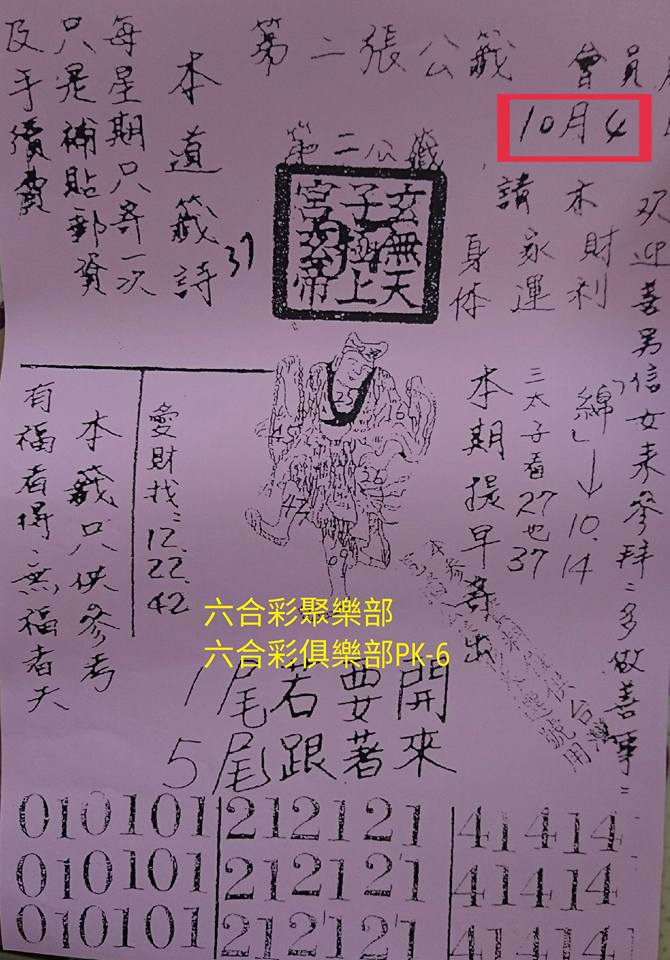 第二張公籤
會員
10月4
第二公籤
玄天上
子無極
宮玄帝
欢迎善男信女来參拜：多做善事：
本財利
請家運
身体
綿→10.14
三太子看27也37
本期提早寄出
本道籤詩
37
每星期只寄一次
只是補貼郵資
及手續費
25
16
45
42
26
愛財找：12.22.42
本籤只供參考
有福者得、無福者失
六合彩聚樂部
六合彩俱樂部PK-6
1尾若要開
5尾跟著來
010101 212121 414141
010101 212121 414141
010101 212121 414141